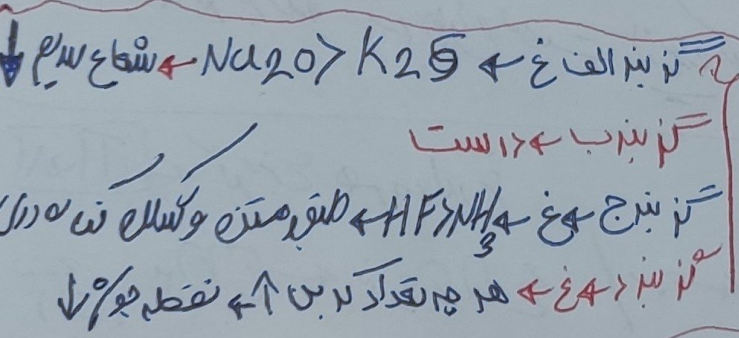 گزینه الف غ ← Na2O > K2O ← شعاع سدیم ↓
گزینه ب ← درست
گزینه ج ← غ ← HF > NH3 ← طبق متن و کتاب
گزینه د ← غ ← هر چه تعداد کربن ↑ ← نقطه جوش ↓